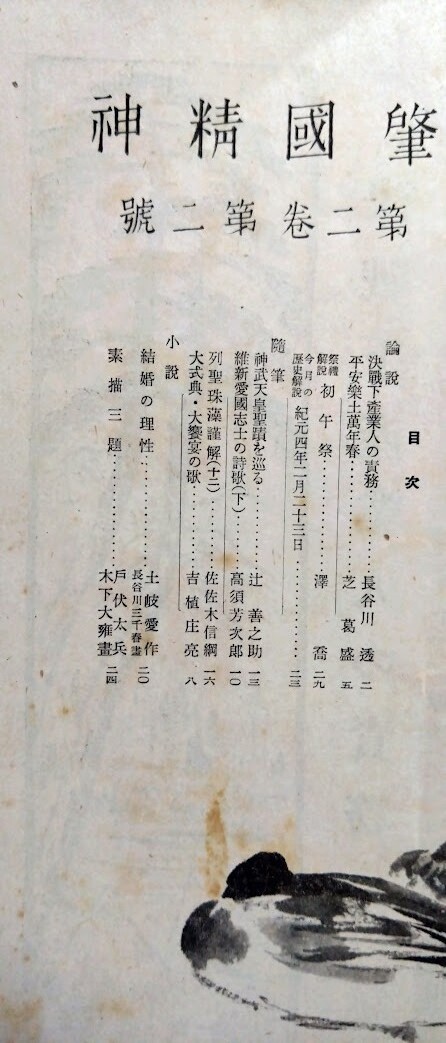 肇國精神
第二卷第二號
目次
論說
決戰下產業人の責務…………長谷川透 二
平安樂土萬年春…………芝葛盛 五
祭禮解說 初午祭…………澤喬 二九
今月の歷史解說 紀元四年二月二十三日…………二三
隨筆
神武天皇聖蹟を巡る…………辻善之助 一三
維新愛國志士の詩歌(下)…………高須芳次郎 一〇
列聖珠藻謹解(十二)…………佐佐木信綱 一六
大式典・大饗宴の歌…………吉植庄亮 八
小說
結婚の理性…………土岐愛作 二〇
長谷川三千春畫
素描三題…………戶伏太兵 二四
木下大雍畫